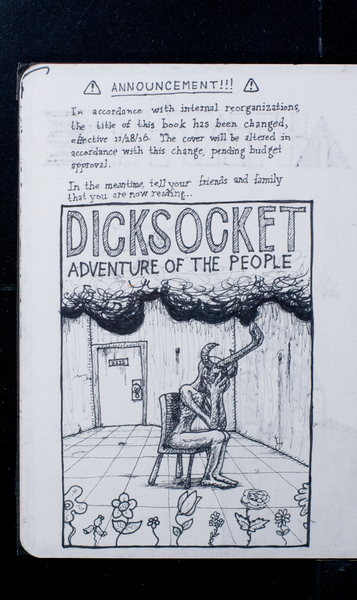 ANNOUNCEMENT!!!
In accordance with internal reorganizations,
the title of this book has been changed,
effective 11/28/16. The cover will be altered in
accordance with this change, pending budget
approval.
In the meantime, tell your friends and family
that you are now reading...
DICKSOCKET
ADVENTURE OF THE PEOPLE